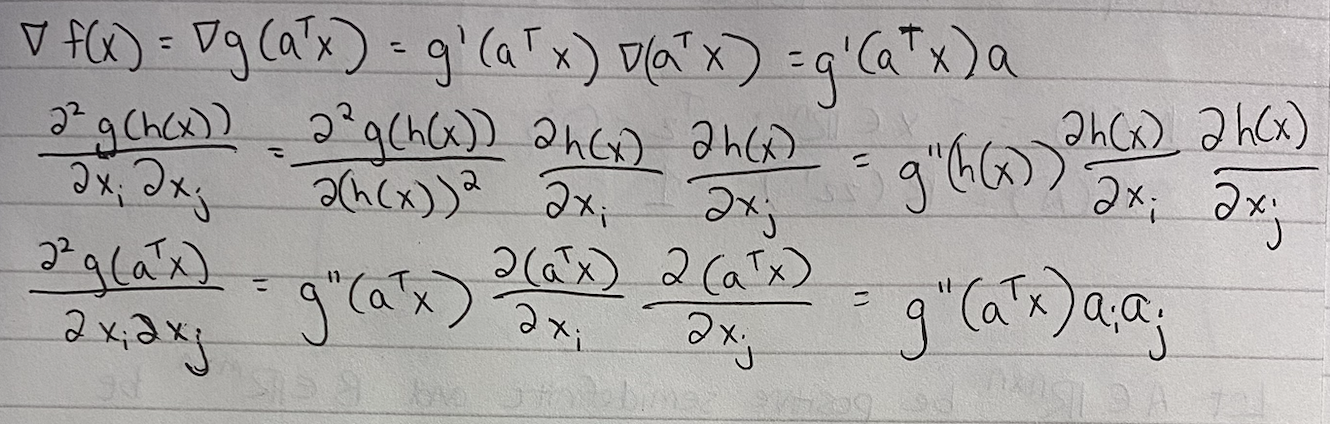 ∇ f(x) = ∇g(aᵀx) = g'(aᵀx) ∇(aᵀx) = g'(aᵀx)a
∂² g(h(x)) / ∂xᵢ ∂xⱼ = ∂² g(h(x)) / ∂(h(x))² ∂h(x) / ∂xᵢ ∂h(x) / ∂xⱼ = g''(h(x)) ∂h(x) / ∂xᵢ ∂h(x) / ∂xⱼ
∂² g(aᵀx) / ∂xᵢ∂xⱼ = g''(aᵀx) ∂(aᵀx) / ∂xᵢ ∂(aᵀx) / ∂xⱼ = g''(aᵀx)aᵢaⱼ